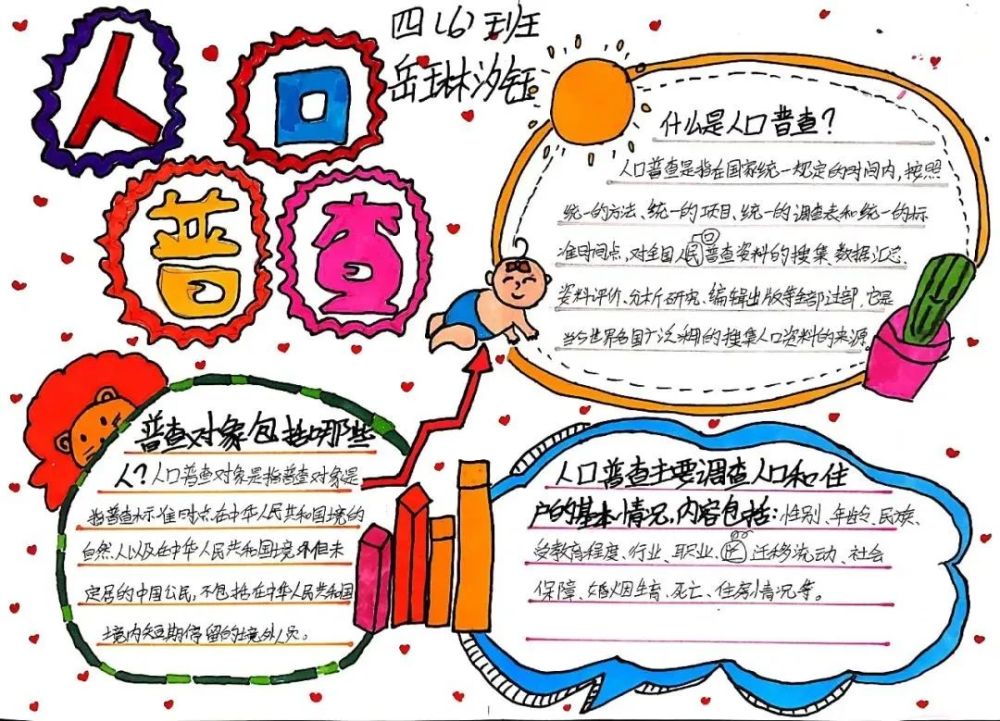 人口
普查
四(6)班
岳琳汐钰
什么是人口普查?
人口普查是指在国家统一规定的时间内,按照
统一的方法、统一的项目、统一的调查表和统一的标
准时间点,对全国人民口普查资料的搜集、数据汇总、
资料评价、分析研究、编辑出版等全部过部,它是
当今世界各国广泛采用的搜集人口资料的来源
普查对象包括哪些
人?人口普查对象是指普查对象是
指普查标准时点在中华人民共和国境的
自然人以及在中华人民共和国境外但未
定居的中国公民,不包括在中华人民共和国
境内短期停留的境外人员。
人口普查主要调查人口和住
户的基本情况,内容包括:性别、年龄、民族、
受教育程度、行业、职业、迁移流动、社会
保障、婚姻生育、死亡、住房情况等。